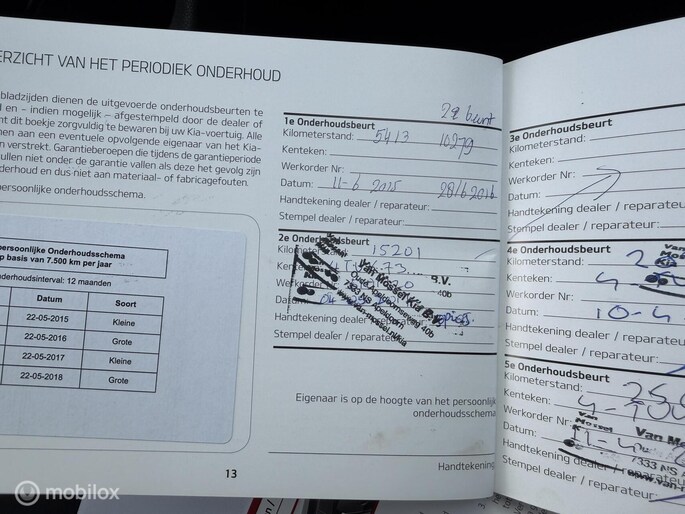 ERZICHT VAN HET PERIODIEK ONDERHOUD
bladzijden dienen de uitgevoerde onderhoudsbeurten te
d en - indien mogelijk - afgestempeld door de dealer of
nt dit boekje zorgvuldig te bewaren bij uw Kia-voertuig. Alle
nen aan een eventuele opvolgende eigenaar van het Kia-
n verstrekt. Garantieberoepen die tijdens de garantieperiode
ullen niet onder de garantie vallen als deze het gevolg zijn
derhoud en dus niet aan materiaal- of fabricagefouten.
persoonlijke onderhoudsschema.
persoonlijke Onderhoudsschema
p basis van 7.500 km per jaar
nderhoudsinterval: 12 maanden
Datum Soort
22-05-2015 Kleine
22-05-2016 Grote
22-05-2017 Kleine
22-05-2018 Grote
2e beurt
1e Onderhoudsbeurt
Kilometerstand: 5413 10279
Kenteken:
Werkorder Nr:
Datum: 11-6 2015 28/6 2016
Handtekening dealer / reparateur:
Stempel dealer / reparateur:
2e Onderhoudsbeurt
Kilometerstand: 15201
Kenteken
Werkorder
Datum
Van Mossel Kia B.V.
40b
7333 NS Apeldoorn
www.van-mossel.nl/kia
Handtekening dealer / reparateur
Stempel dealer / reparateur
Eigenaar is op de hoogte van het persoonlijk
onderhoudsschema
Handtekening
13
3e Onderhoudsbeurt
Kilometerstand:
Kenteken:
Werkorder Nr:
Datum:
Handtekening dealer / reparateur:
Stempel dealer / reparateur:
4e Onderhoudsbeurt
Kilometerstand: 2
Kenteken: 4-
Werkorder Nr:
Datum: 10-4
Handtekening dealer / reparateur
Stempel dealer / reparateur:
5e Onderhoudsbeurt
Kilometerstand: 250
Kenteken: 4-
Werkorder Nr:
Van Mossel
Datum: 11-4
7333 NS A
Handtekening dealer / repa
www.van-m
Stempel dealer / reparateur:
mobilox